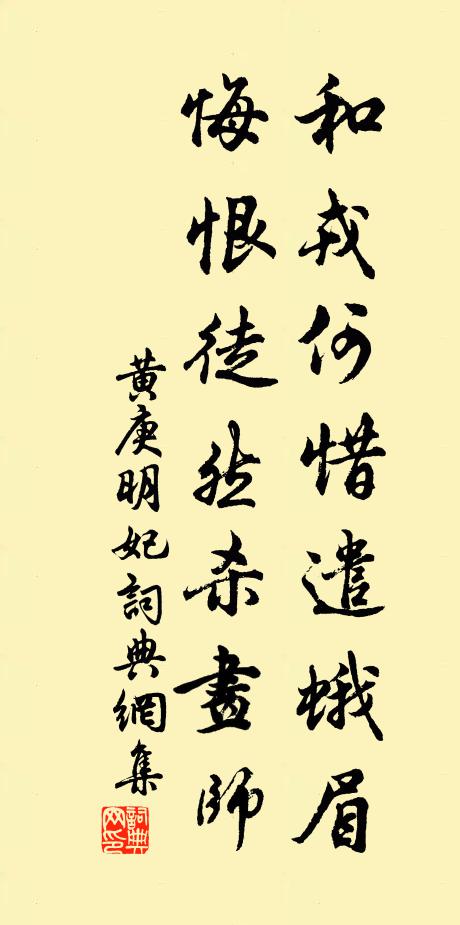 和戎何惜遣蛾眉
悔恨徒然杀畫師
黄庚明妃詞典網集
詞典网印